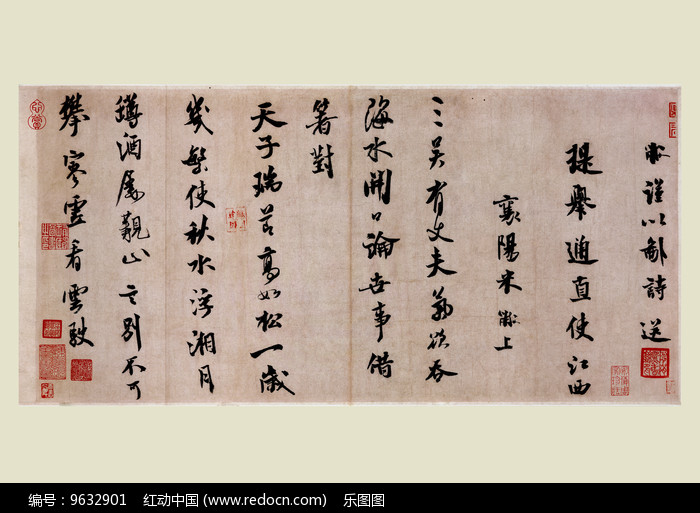 黻謹以鄙詩送
提舉通直使江西
襄陽米黻上
三吴有丈夫氣欲吞
海水開口論世事借
箸對
天子瑞節高如松一歲
幾繁使秋水浮湘月
罇酒屢覯止言別不可
攀寒雲看雲駛
编号：9632901 红动中国 (www.redocn.com) 乐图图